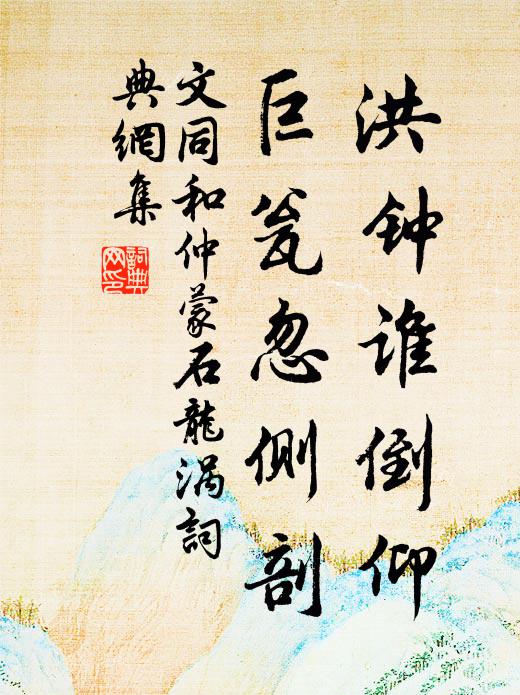 洪钟谁倒仰
巨瓮忽侧剖
文同和仲蒙石龍涡詞
典網集
詞典网印